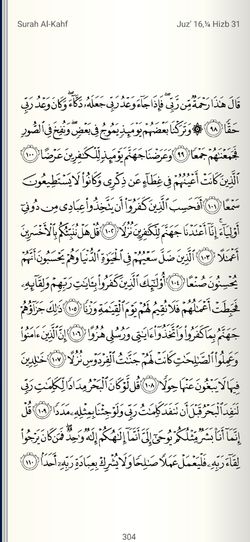 Surah Al-Kahf
Juz' 16,¼ Hizb 31
قَالَ هَٰذَا رَحْمَةٌ مِّن رَّبِّي ۖ فَإِذَا جَاءَ وَعْدُ رَبِّي جَعَلَهُ دَكَّاءَ ۖ وَكَانَ وَعْدُ رَبِّي
حَقًّا ۝٩٨ وَتَرَكْنَا بَعْضَهُمْ يَوْمَئِذٍ يَمُوجُ فِي بَعْضٍ ۖ وَنُفِخَ فِي الصُّورِ
فَجَمَعْنَاهُمْ جَمْعًا ۝٩٩ وَعَرَضْنَا جَهَنَّمَ يَوْمَئِذٍ لِّلْكَافِرِينَ عَرْضًا ۝١٠٠
الَّذِينَ كَانَتْ أَعْيُنُهُمْ فِي غِطَاءٍ عَن ذِكْرِي وَكَانُوا لَا يَسْتَطِيعُونَ
سَمْعًا ۝١٠١ أَفَحَسِبَ الَّذِينَ كَفَرُوا أَن يَتَّخِذُوا عِبَادِي مِن دُونِي
أَوْلِيَاءَ ۚ إِنَّا أَعْتَدْنَا جَهَنَّمَ لِلْكَافِرِينَ نُزُلًا ۝١٠٢ قُلْ هَلْ نُنَبِّئُكُم بِالْأَخْسَرِينَ
أَعْمَالًا ۝١٠٣ الَّذِينَ ضَلَّ سَعْيُهُمْ فِي الْحَيَاةِ الدُّنْيَا وَهُمْ يَحْسَبُونَ أَنَّهُمْ
يُحْسِنُونَ صُنْعًا ۝١٠٤ أُولَٰئِكَ الَّذِينَ كَفَرُوا بِآيَاتِ رَبِّهِمْ وَلِقَائِهِ
فَحَبِطَتْ أَعْمَالُهُمْ فَلَا نُقِيمُ لَهُمْ يَوْمَ الْقِيَامَةِ وَزْنًا ۝١٠٥ ذَٰلِكَ جَزَاؤُهُمْ
جَهَنَّمُ بِمَا كَفَرُوا وَاتَّخَذُوا آيَاتِي وَرُسُلِي هُزُوًا ۝١٠٦ إِنَّ الَّذِينَ آمَنُوا
وَعَمِلُوا الصَّالِحَاتِ كَانَتْ لَهُمْ جَنَّاتُ الْفِرْدَوْسِ نُزُلًا ۝١٠٧ خَالِدِينَ
فِيهَا لَا يَبْغُونَ عَنْهَا حِوَلًا ۝١٠٨ قُل لَّوْ كَانَ الْبَحْرُ مِدَادًا لِّكَلِمَاتِ رَبِّي
لَنَفِدَ الْبَحْرُ قَبْلَ أَن تَنفَدَ كَلِمَاتُ رَبِّي وَلَوْ جِئْنَا بِمِثْلِهِ مَدَدًا ۝١٠٩ قُلْ
إِنَّمَا أَنَا بَشَرٌ مِّثْلُكُمْ يُوحَىٰ إِلَيَّ أَنَّمَا إِلَٰهُكُمْ إِلَٰهٌ وَاحِدٌ ۖ فَمَن كَانَ يَرْجُو
لِقَاءَ رَبِّهِ فَلْيَعْمَلْ عَمَلًا صَالِحًا وَلَا يُشْرِكْ بِعِبَادَةِ رَبِّهِ أَحَدًا ۝١١٠
304